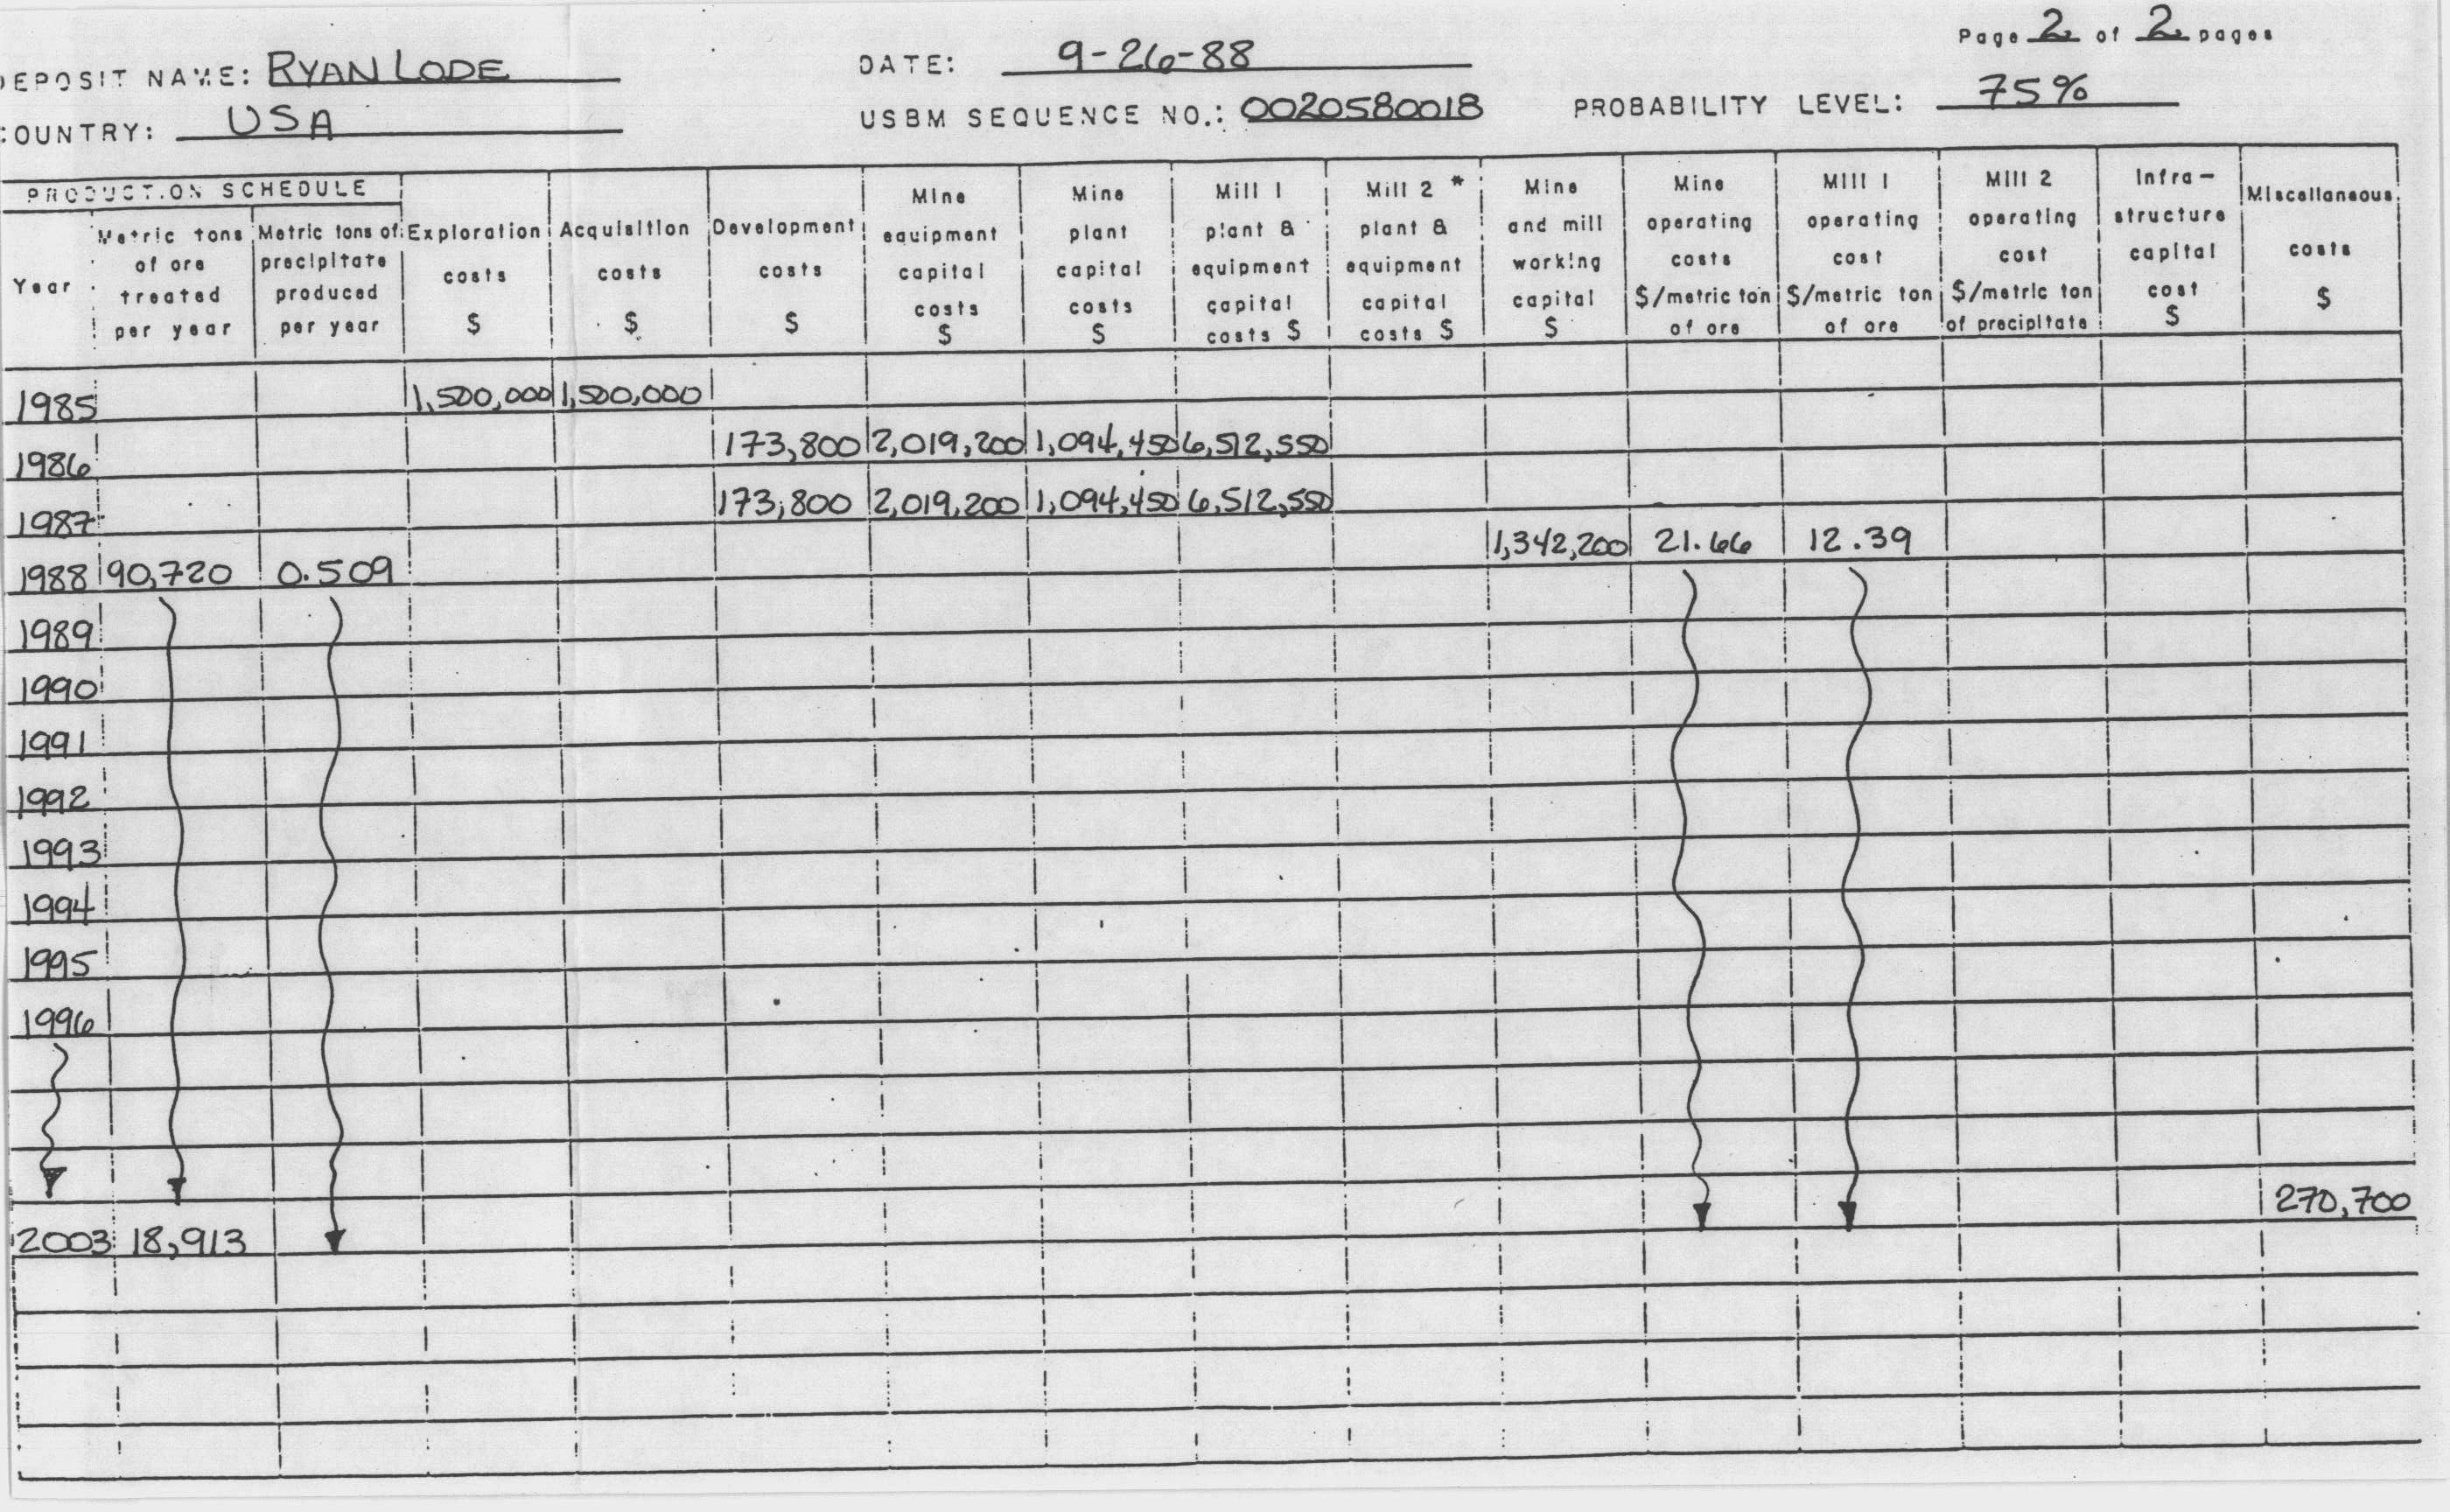 Page 2 of 2 pages
DEPOSIT NAME: RYAN LODE DATE: 9-26-88
COUNTRY: USA USBM SEQUENCE NO.: 0020580018 PROBABILITY LEVEL: 75%
PRODUCTION SCHEDULE
Year
Metric tons
of ore
treated
per year
Metric tons of
precipitate
produced
per year
Exploration
costs
$
Acquisition
costs
$
Development
costs
$
Mine
equipment
capital
costs
$
Mine
plant
capital
costs
$
Mill 1
plant &
equipment
capital
costs $
Mill 2 *
plant &
equipment
capital
costs $
Mine
and mill
working
capital
$
Mine
operating
costs
$/metric ton
of ore
Mill 1
operating
cost
$/metric ton
of ore
Mill 2
operating
cost
$/metric ton
of precipitate
Infra-
structure
capital
cost
$
Miscellaneous
costs
$
1985 1,500,000 1,500,000
1986 173,800 2,019,200 1,094,450 6,512,550
1987 173,800 2,019,200 1,094,450 6,512,550
1988 90,720 0.509 1,342,200 21.66 12.39
1989
1990
1991
1992
1993
1994
1995
1996
2003 18,913 270,700